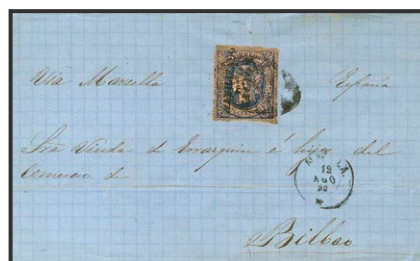 Via Marsella España
Sra Viuda de Errazquin é hijos del
Comercio de
Bilbao
19
AGO